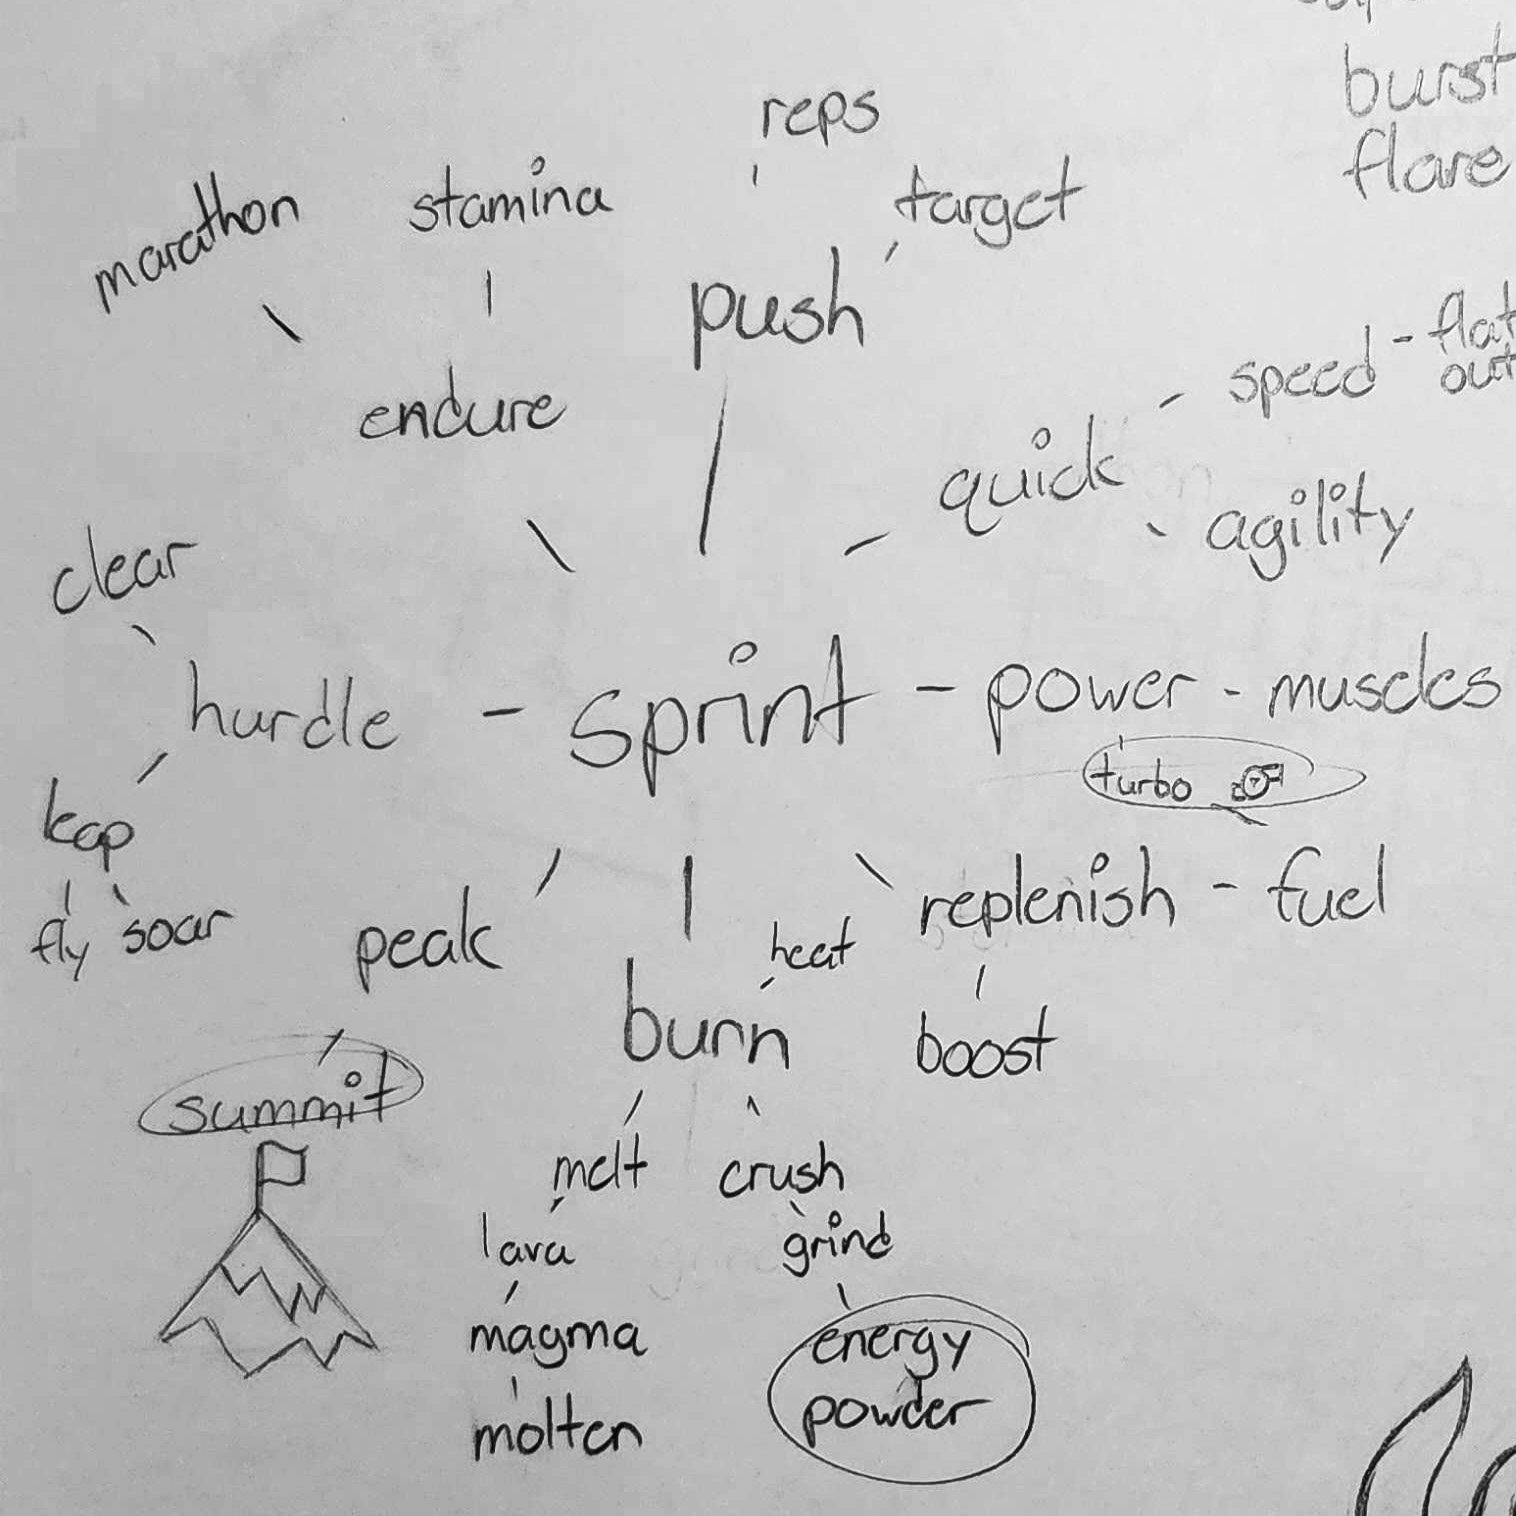 burst
flare
reps
marathon
stamina
target
push
speed - flat
out
endure
quick
agility
clear
hurdle - sprint - power - muscles
turbo
leap
fly soar
peak
heat
replenish - fuel
burn
boost
summit
melt crush
lava grind
magma energy
powder
molten